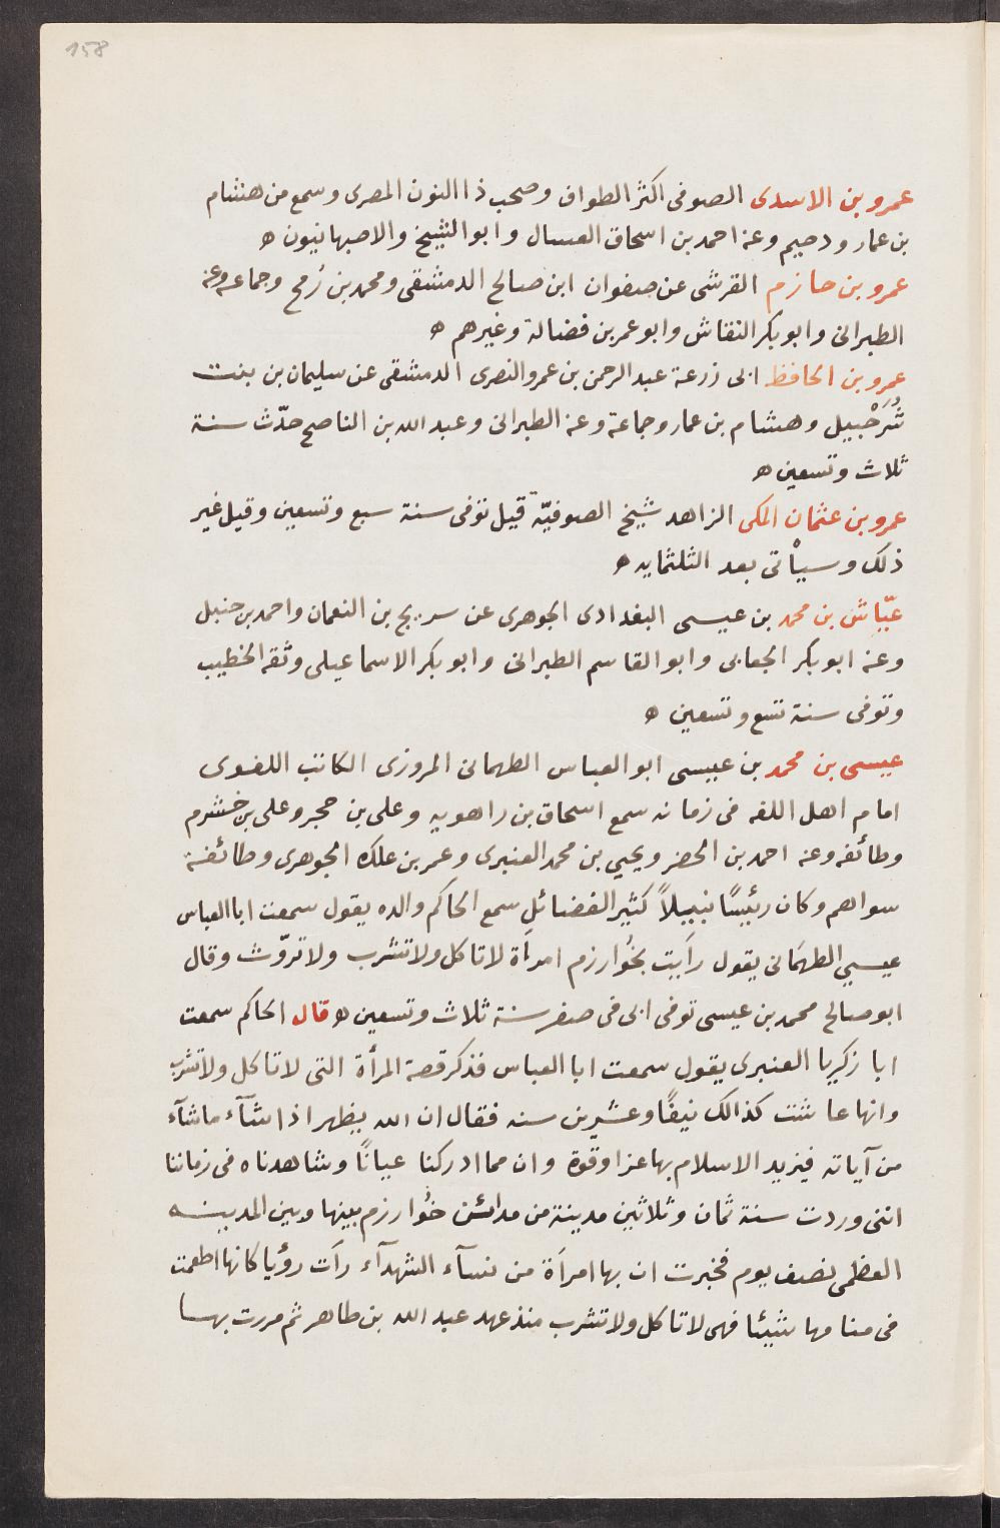 158
عمرو بن الاسدى الصوفى اكثر الطواف وصحب ذا النون المصرى وسمع من هشام
بن عمار ودحيم وعنه احمد بن اسحاق العسال وابو الشيخ والاصبهانيون ه
عمرو بن حازم القرشى عن صفوان ابن صالح الدمشقى ومحمد بن رُمح وجماعه وعنه
الطبرانى وابو بكر النقاش وابو عمر بن فضالة وغيرهم ه
عمرو بن الحافظ ابى زرعة عبد الرحمن بن عمرو النصرى الدمشقى عن سليمان بن بنت
شُرَحْبيل وهشام بن عمار وجماعة وعنه الطبرانى وعبد الله بن الناصح حدّث سنة
ثلاث وتسعين ه
عمرو بن عثمان المكى الزاهد شيخ الصوفيّة قيل توفى سنة سبع وتسعين وقيل غير
ذلك وسيأتى بعد الثلثمايه ه
عيّاش بن محمد بن عيسى البغدادى الجوهرى عن سريج بن النعمان واحمد بن حنبل
وعنه ابو بكر الجعابى وابو القاسم الطبرانى وابو بكر الاسماعيلى وثقه الخطيب
وتوفى سنة تسع وتسعين ه
عيسى بن محمد بن عيسى ابو العباس الطهمانى المروزى الكاتب اللغوى
امام اهل اللغه فى زمانه سمع اسحاق بن راهويه وعلى بن حجر وعلى بن خشرم
وطائفه وعنه احمد بن الخضر ويحيى بن محمد العنبرى وعمر بن علك الجوهرى وطائفة
سواهم وكان رئيسًا نبيلاً كثير الفضائل سمع الحاكم والده يقول سمعت ابا العباس
عيسى الطهمَانى يقول رأيت بخُوارزم امرأة لا تاكل ولا تشرب ولا تروّث وقال
ابو صالح محمد بن عيسى توفى ابى فى صفر سنة ثلاث وتسعين ه قال الحاكم سمعت
ابا زكريا العنبرى يقول سمعت ابا العباس فذكر قصة المرأة التى لا تاكل ولا تشرب
وانها عاشت كذالك نيفًا وعشرين سنه فقال ان الله يظهر اذا شآء ما شآء
من آياته فيزيد الاسلام بها عزا وقوة وان مما ادركنا عيانًا وشاهدناه فى زماننا
اننى وردت سنة ثمان وثلاثين مدينة من مدائن خُوارزم بينها وبين المدينه
العظمى نصف يوم فخبرت ان بها امرأة من نسآء الشهدآء رأت رؤيا كانها اطعمت
فى منامها شيئا فهى لا تاكل ولا تشرب منذ عهد عبد الله بن طاهر ثم مررت بها